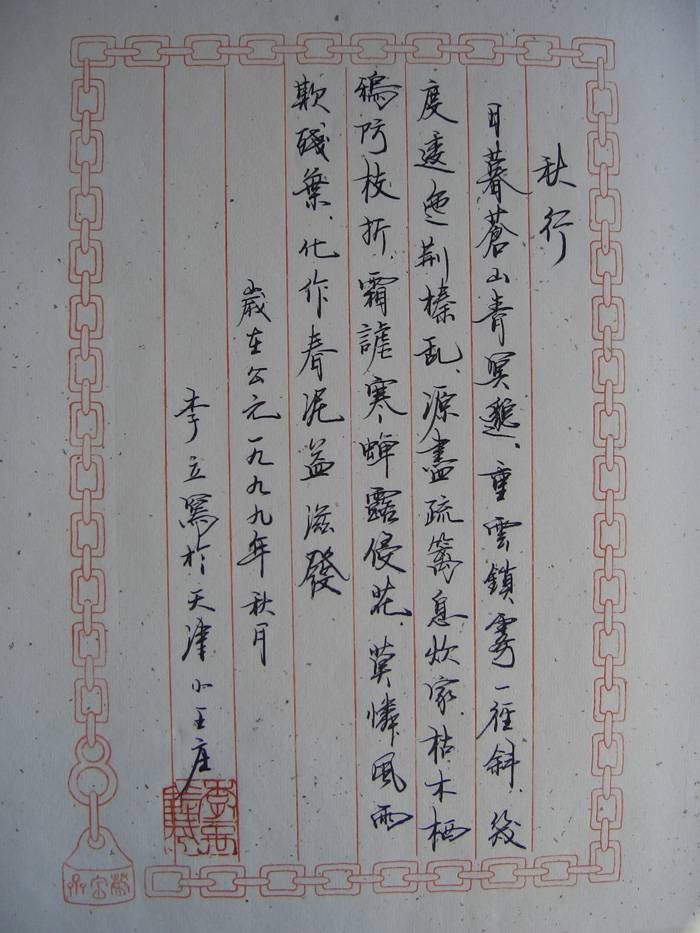 秋行
日暮蒼山青冥邈、重雲鎖雾一徑斜、幾
度逶迤荆榛乱、源盡疏篱息炊家、枯木栖
鴉阿枝折、霜謔寒蟬露侵花、莫憐風雨
欺殘葉、化作春泥益滋發
歲在公元一九九九年秋月
李立寫於天津小王庄